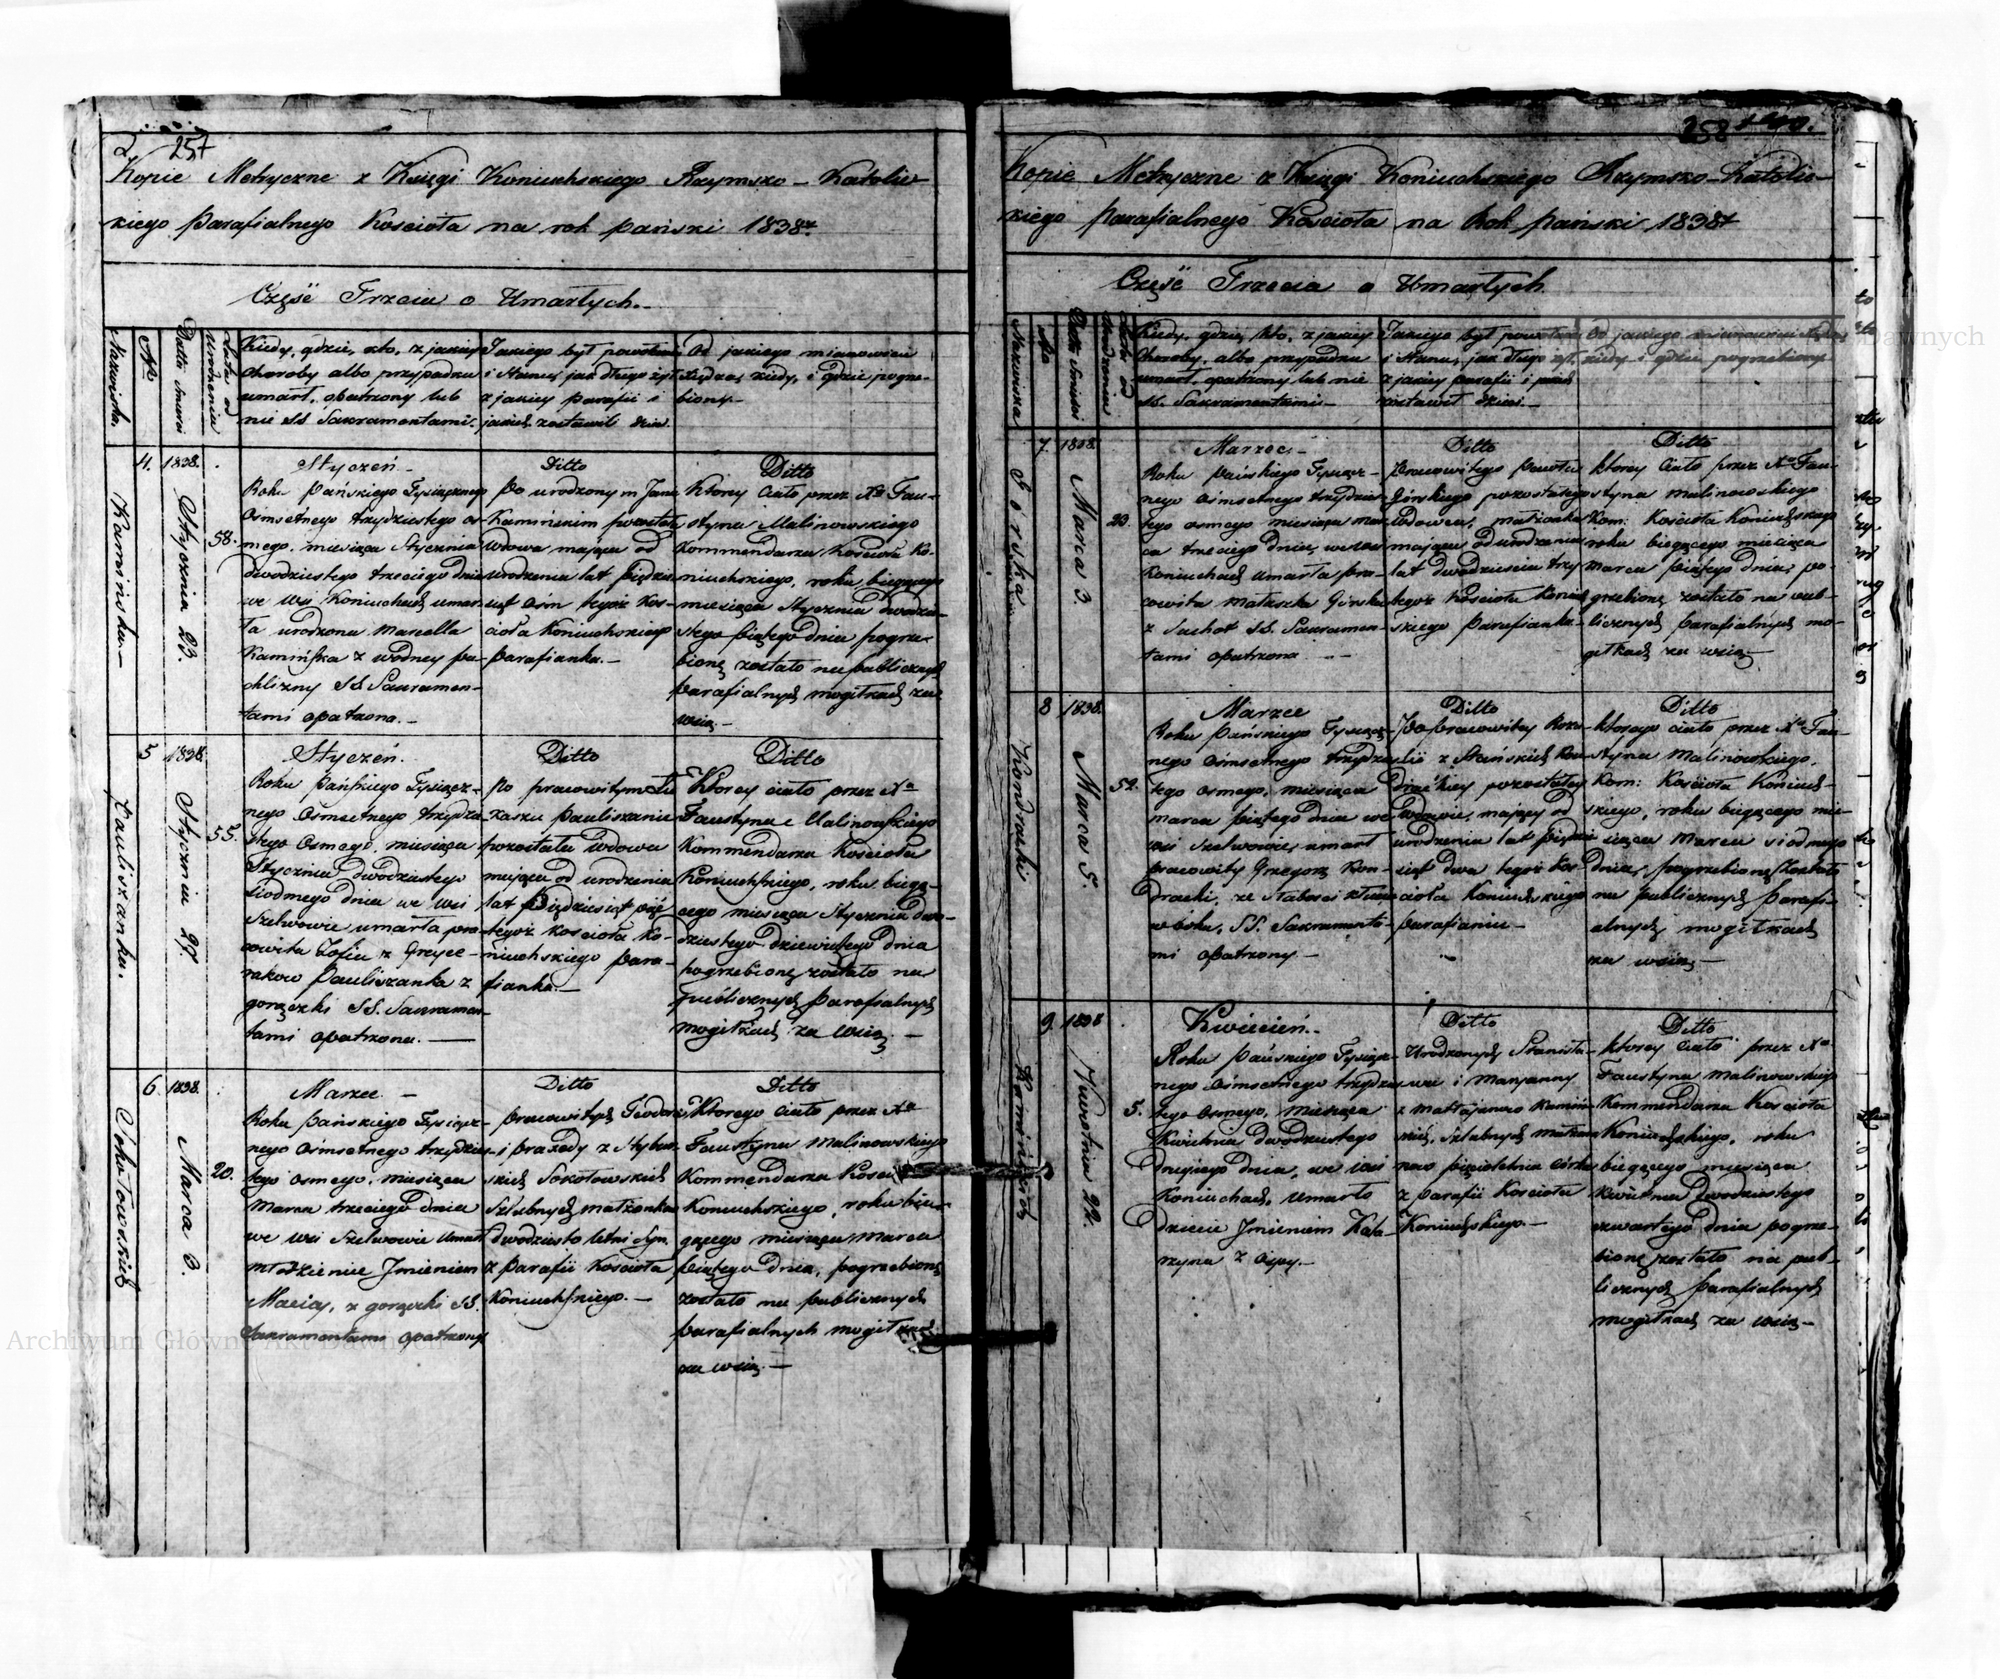 2 257
Kopie Metryczne z Księgi Koniuchskiego Rzymsko-Katolic-
kiego Parafialnego Kościoła na rok pański 1838.
Część Trzecia o Umarłych.
Nazwiska.
No
Data śmierci
Lata od urodzenia
Kiedy, gdzie, kto, z jakiey
choroby albo przypadku
umarł, opatrzony lub
nie SS. Sakramentami.
Jakiego był powołania
i stanu, jak długo żył
z jakiey parafii i
jakich zostawił dzieci.
Od jakiego mianowicie
Xiędza, kiedy, i gdzie pogrze-
biony.
4. 1838.
Kamińska.
Stycznia 23.
58.
Styczeń
Roku Pańskiego Tysiącznego
Osmsetnego trzydziestego os-
mego, miesiąca Stycznia
dwódziestego trzeciego dnia
we wsi Koniuchach umar-
ła urodzona Marcella
Kamińska z wodney pu-
chlizny SS. Sakramen-
tami opatrzona.
Ditto
Po urodzonym Janie
Kamińskim pozostała
wdowa mająca od
urodzenia lat pięćdzie-
siąt ośm tegoż Koś-
cioła Koniuchskiego
parafianka.
Ditto
Ktorey ciało przez Xa Fau-
styna Malinowskiego
Kommendarza Kościoła Ko-
niuchskiego, roku bieżącego
miesiąca Stycznia dwódzie-
stego piątego dnia pogrze-
bione zostało na publicznych
parafialnych mogiłkach za
wsią.
5 1838.
Pauliszanka.
Stycznia 27.
55.
Styczeń.
Roku Pańskiego Tysiącz-
nego Osmsetnego trzydzie-
stego Osmego, miesiąca
Stycznia dwódziestego
siodmego dnia we wsi
Szelwowie umarła pra-
cowita Zofia z Gryce-
rakow Pauliszanka z
gorączki SS. Sakramen-
tami opatrzona.
Ditto
Po pracowitym Łu
kaszu Pauliszanie
pozostała wdowa
mająca od urodzenia
lat pięćdziesiąt pięć
tegoż Kościoła Ko-
niuchskiego Para-
fianka.
Ditto
Ktorey ciało przez Xa
Faustyna Malinowskiego
Kommendarza Kościoła
Koniuchskiego, roku bieżą-
cego miesiąca Stycznia dwó-
dziestego dziewiątego dnia
pogrzebione zostało na
publicznych parafialnych
mogiłkach za wsią.
6 1838.
Sokołowskich
Marca 3.
20.
Marzec
Roku Pańskiego Tysiącz-
nego Osmsetnego trzydzies-
tego osmego, miesiąca
Marca trzeciego dnia
we wsi Szelwowie umarł
młodzienic Jmieniem
Maciey, z gorączki SS.
Sakramentami opatrzony
Ditto
pracowitych Teodora
i Prazedy z
Sokołowskich
Szlubnych małżonkow
dwódziesto letni syn
z parafii Kościoła
Koniuchskiego.
Ditto
Ktorego ciało przez Xa
Faustyna Malinowskiego
Kommendarza Kościoła
Koniuchskiego, roku bie-
żącego miesiąca Marca
piątego dnia, pogrzebione
zostało na publicznych
parafialnych mogiłkach
za wsią.
258
Kopie Metryczne z Księgi Koniuchskiego Rzymsko-Katolic-
kiego Parafialnego Kościoła na Rok pański 1838
Część Trzecia o Umarłych.
Nazwiska
No
Data śmierci
Lata od urodzenia
Kiedy, gdzie, kto, z jakiey
choroby, albo przypadku
umarł, opatrzony lub nie
SS. Sakramentami.
Jakiego był powołania
i stanu, jak długo żył,
z jakiey parafii i jakich
zostawił dzieci.
Od jakiego mianowicie Xiędza
kiedy i gdzie pogrzebiony
7. 1838.
Górska
Marca 3.
23.
Marzec
Roku Pańskiego Tysiącz-
nego Osmsetnego trzydzies-
tego osmego miesiąca mar-
ca trzeciego dnia, we wsi
Koniuchach umarła pra-
cowita Górska
z suchot SS. Sakramen-
tami opatrzona
Ditto
Pracowitego Pawła
Górskiego pozostałego
Wdowca, małżonka
mająca od urodzenia
lat dwadzieścia trzy
tegoż Kościoła Koniuch-
skiego parafianka.
Ditto
ktorey ciało przez Xa Fau-
styna Malinowskiego
Kom: Kościoła Koniuchskiego
roku bieżącego miesiąca
marca piątego dnia, po-
grzebione zostało na pub-
licznych parafialnych mo-
giłkach za wsią
8 1838.
Kondracki
Marca 5.
52.
Marzec
Roku Pańskiego Tysiącz-
nego Osmsetnego trzydzies-
tego osmego, miesiąca
marca piątego dnia we
wsi Szelwowie, umarł
pracowity Grzegorz Kon-
dracki, ze słabości
w boku, SS. Sakramenta-
mi opatrzony
Ditto
Po pracowitey Roza-
lii z Kon-
drackiey pozostały
Wdowiec, mający od
urodzenia lat pięćdzie-
siąt dwa tegoż Koś-
cioła Koniuchskiego
parafianin
Ditto
ktorego ciało przez Xa Fau-
styna Malinowskiego,
Kom: Kościoła Koniuch-
skiego, roku bieżącego mie-
siąca Marca siodmego
dnia, pogrzebione zostało
na publicznych parafi-
alnych mogiłkach
za wsią
9 1838
Kamińskich
Kwietnia 22.
5.
Kwiecień.
Roku Pańskiego Tysiącz-
nego Osmsetnego trzydzies-
tego Osmego, miesiąca
Kwietnia dwódziestego
drugiego dnia, we wsi
Koniuchach, umarło
Dziecie Jmieniem Kata-
rzyna z ospy.
Ditto
Urodzonych Stanisła-
wa i Maryanny
z Kamiń-
skich, Szlubnych małżon-
kow pięcioletnia córka
z parafii Kościoła
Koniuchskiego.
Ditto
ktorey ciało przez Xa
Faustyna Malinowskiego
Kommendarza Kościoła
Koniuchskiego, roku
bieżącego miesiąca
Kwietnia dwódziestego
czwartego dnia pogrze-
bione zostało na pub-
licznych parafialnych
mogiłkach za wsią
Archiwum Główne Akt Dawnych